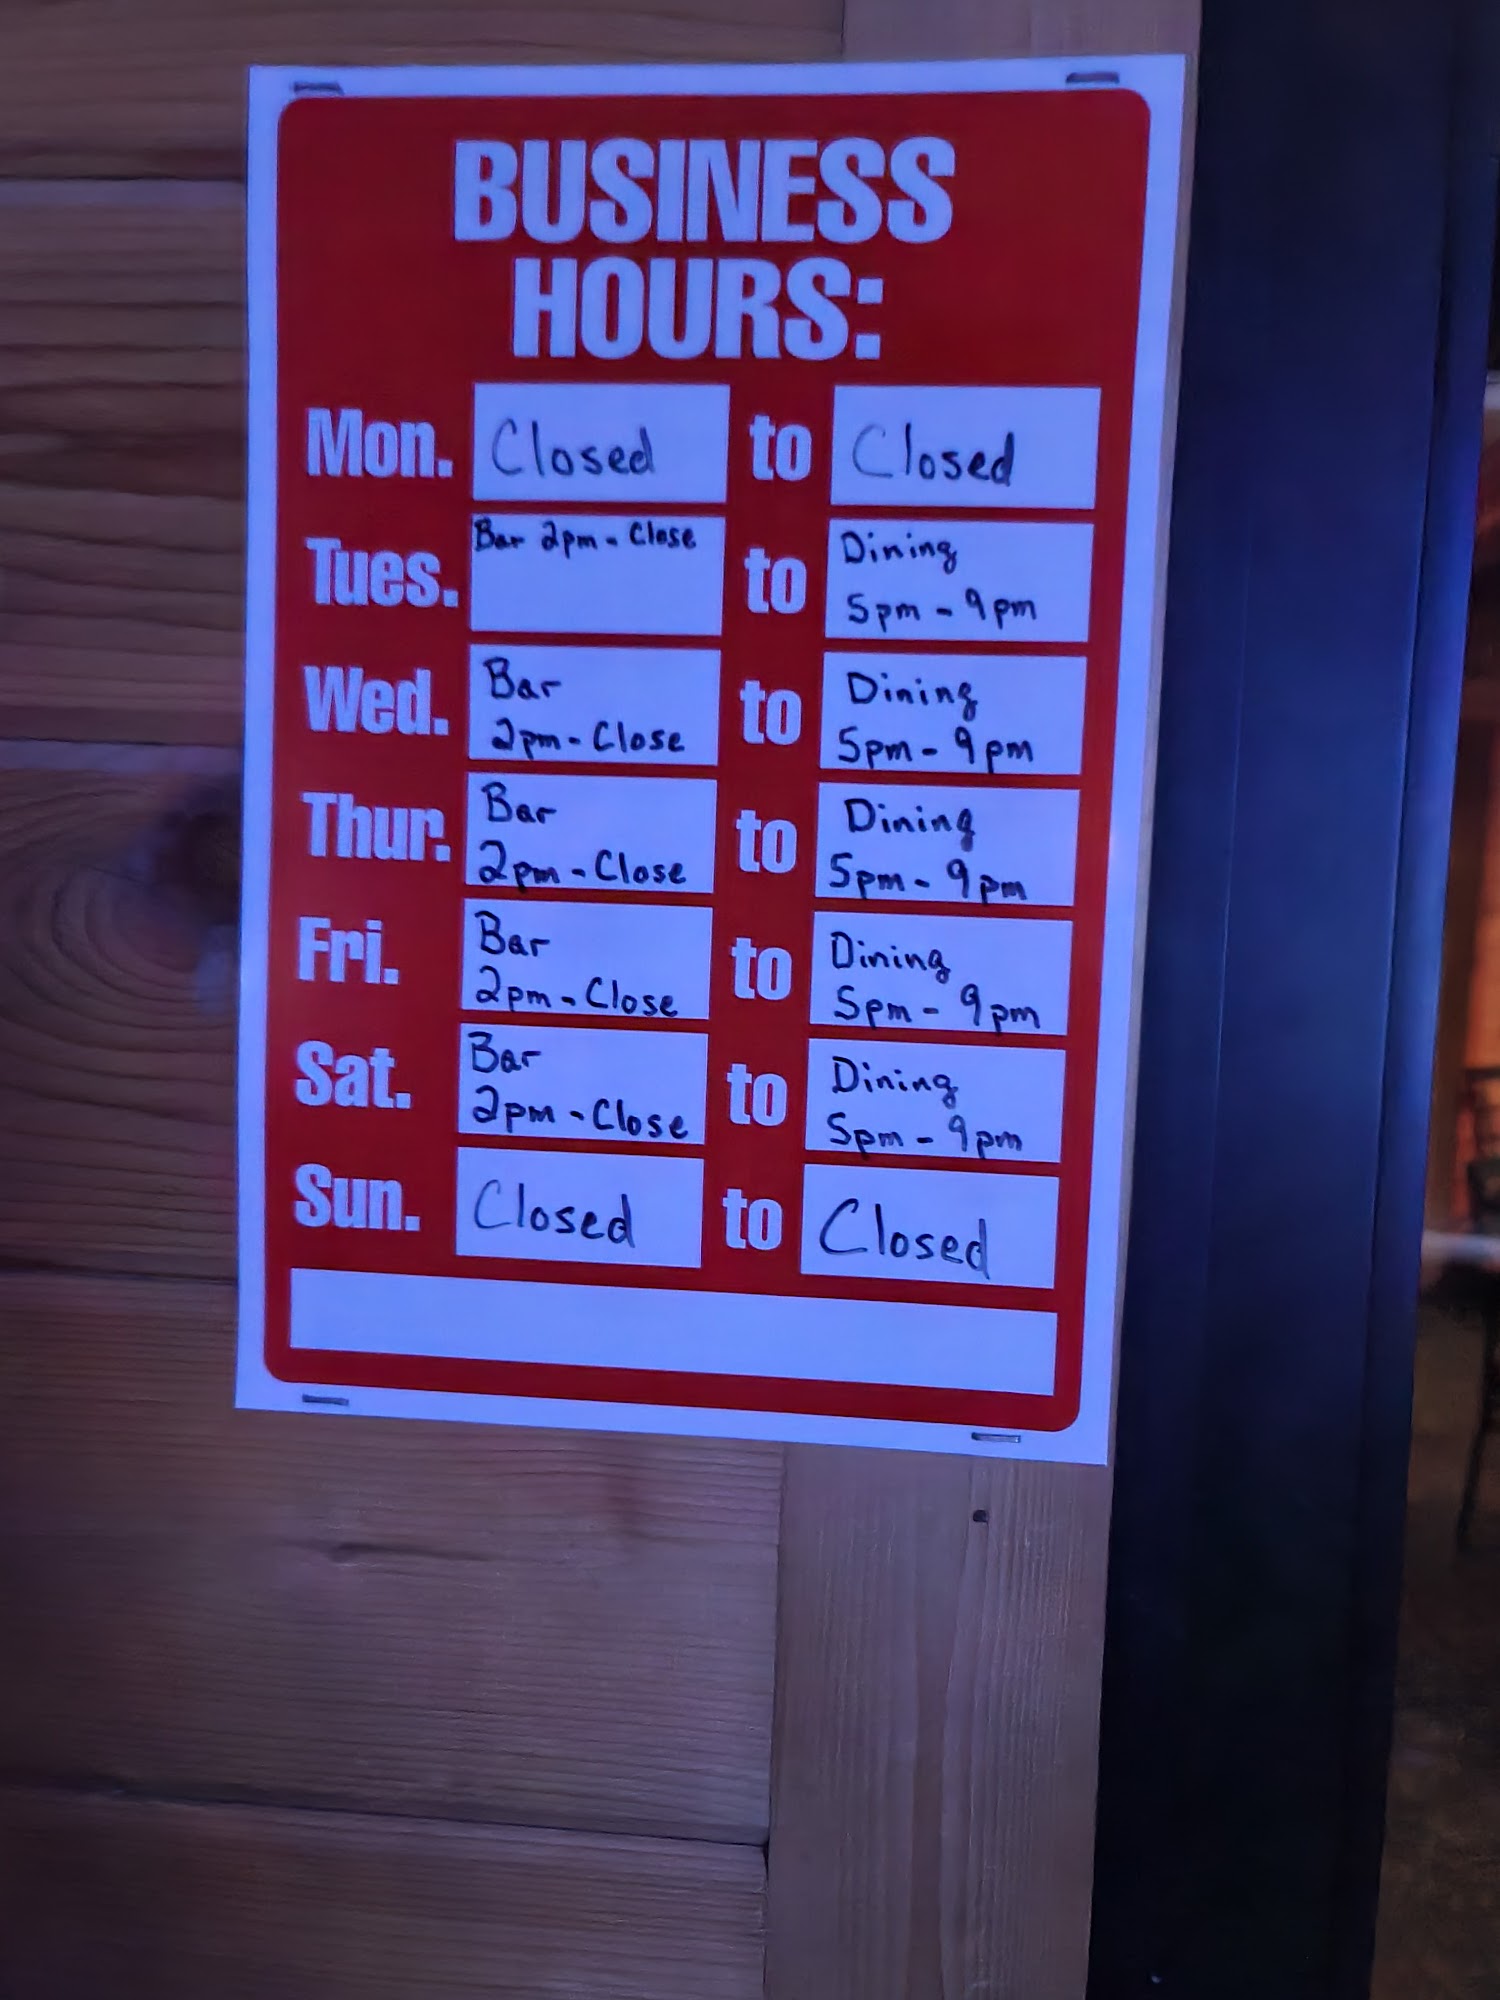 BUSINESS
HOURS:
Mon. Closed to Closed
Tues. Bar 2pm - Close to Dining
5pm - 9pm
Wed. Bar
2pm - Close to Dining
5pm - 9pm
Thur. Bar
2pm - Close to Dining
5pm - 9pm
Fri. Bar
2pm - Close to Dining
5pm - 9pm
Sat. Bar
2pm - Close to Dining
5pm - 9pm
Sun. Closed to Closed